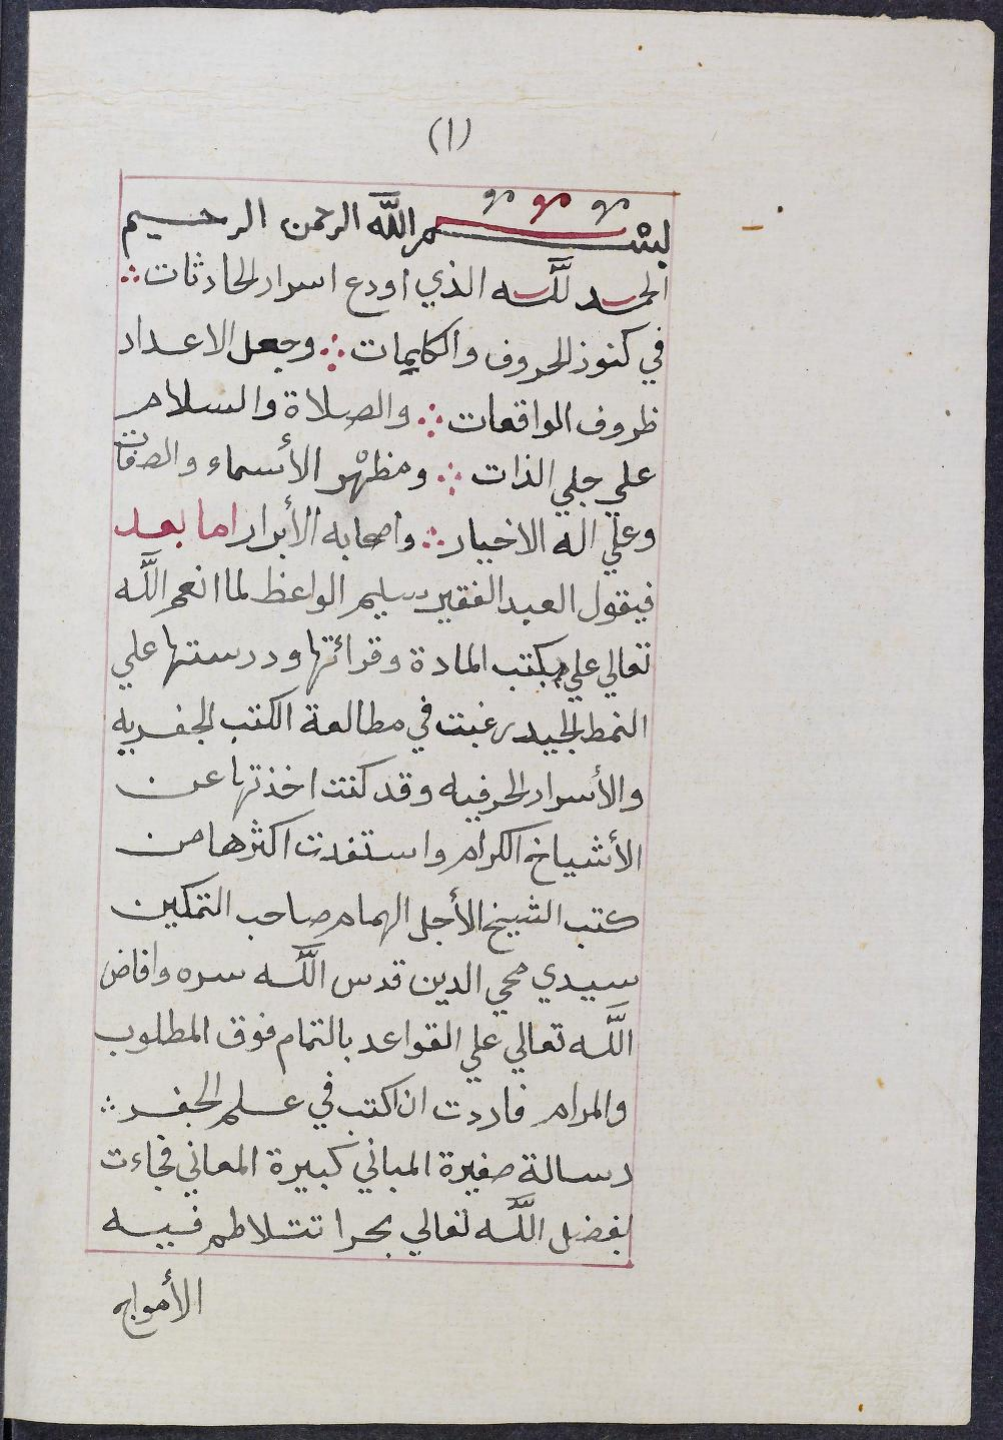 (١)
بسم الله الرحمن الرحيم
الحمد لله الذي اودع اسرار الحادثات
في كنوز الحروف والكليمات وجعل الاعداد
ظروف الواقعات والصلاة والسلام
علي جلي الذات ومظهر الأسماء والصفات
وعلي اله الاخيار واصحابه الأبرار اما بعد
فيقول العبد الفقير سليم الواعظ لما انعم الله
تعالي علي بكتب المادة وقرائتها ودرستها علي
النمط الجيد رغبت في مطالعة الكتب الجفريه
والأسرار الحرفيه وقد كنت اخذتها عن
الأشياخ الكرام واستفدت اكثرها من
كتب الشيخ الأجل الهمام صاحب التمكين
سيدي محي الدين قدس الله سره وافاض
الله تعالي علي القواعد بالتمام فوق المطلوب
والمرام فاردت ان اكتب في علم الجفر
رسالة صغيرة المباني كبيرة المعاني فجاءت
بفضل الله تعالي بحرا تتلاطم فيه
الأمواج